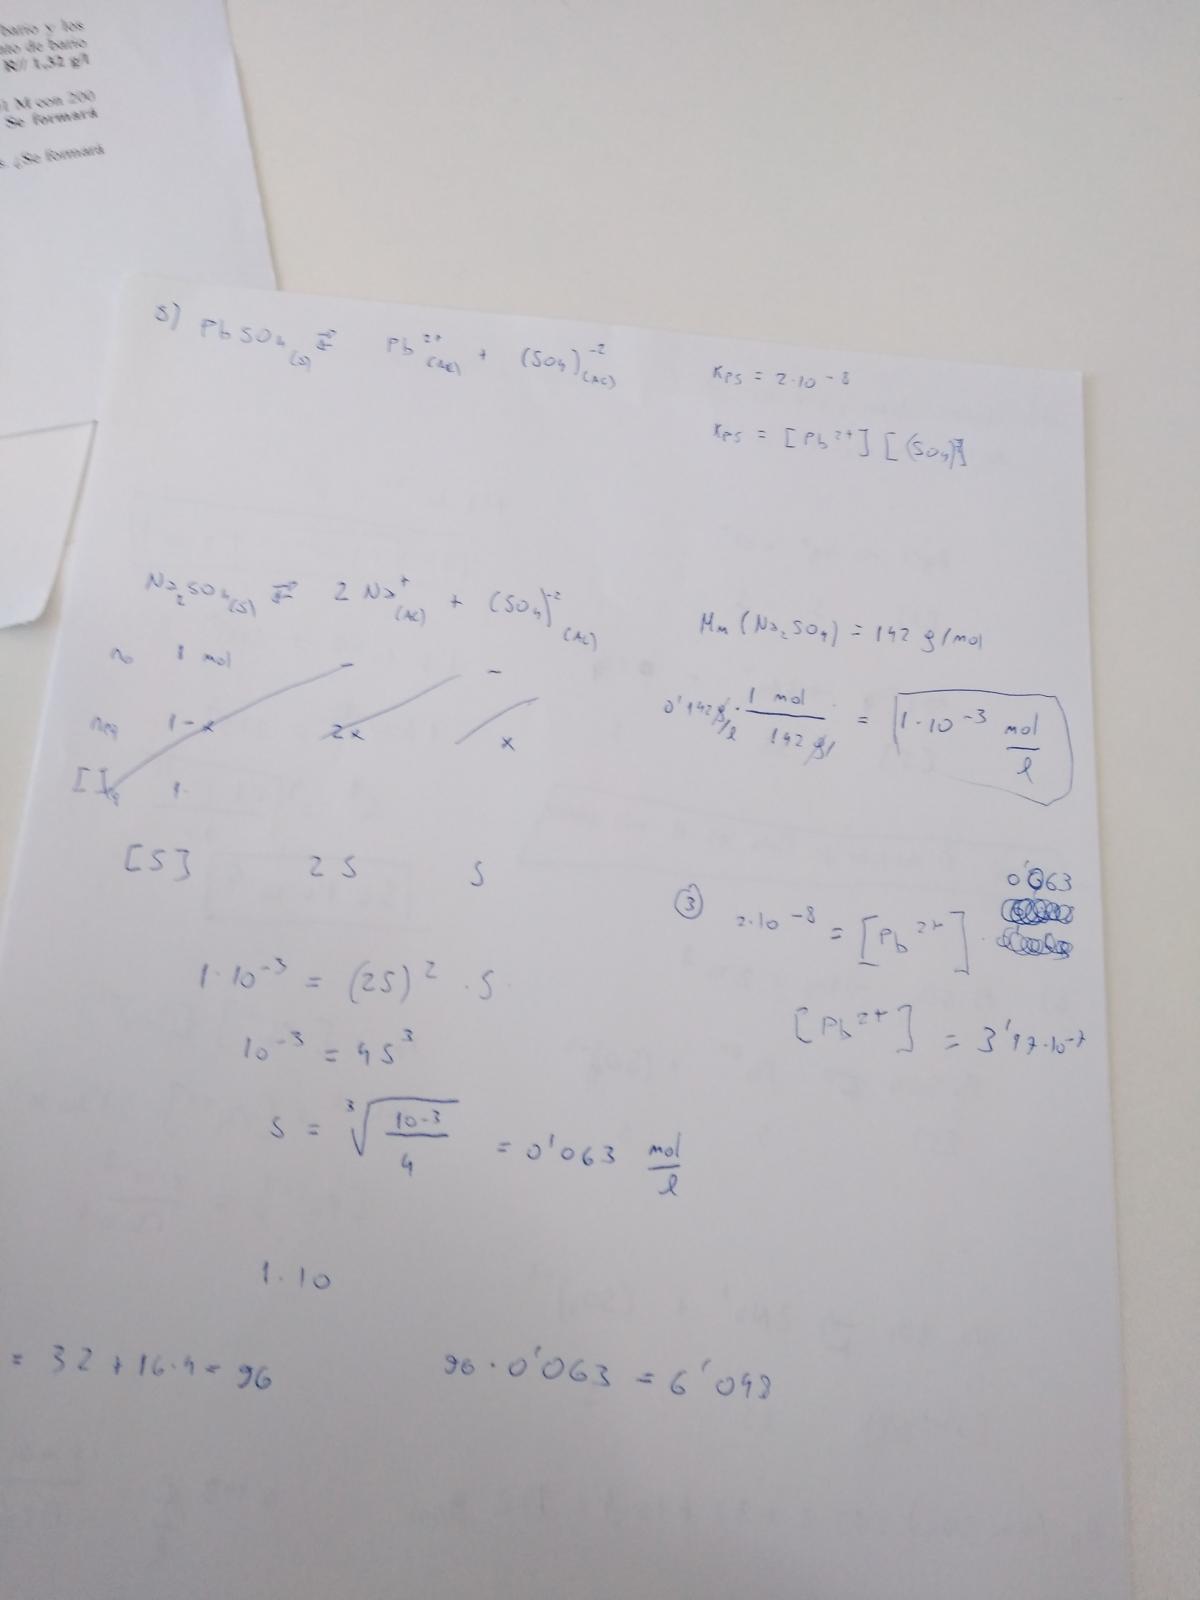 bario y los
ato de bario
R// 1,32 g/l
M con 200
Se formará
¿Se formará
5) PbSO4(s) ⇄ Pb2+(AC) + (SO4)-2(AC)
KPS = 2·10-8
KPS = [Pb2+] [(SO4)2-]
Na2SO4(S) ⇄ 2 Na+(AC) + (SO4)-2(AC)
Mm (Na2SO4) = 142 g/mol
no 1 mol - -
0'142 g/l · 1 mol / 142 g = 1·10-3 mol/l
neq 1-x 2x x
[ ]eq 1-
[S] 2S S
③ 2·10-8 = [Pb2+] · 0'063
1·10-3 = (2S)2 · S
[Pb2+] = 3'17·10-7
10-3 = 4S3
S = 3√(10-3/4) = 0'063 mol/l
1·10
= 32 + 16·4 = 96
96 · 0'063 = 6'048